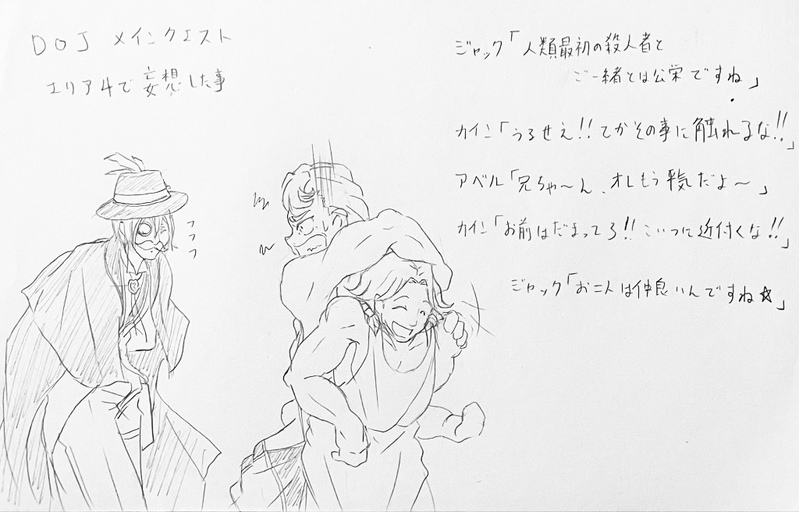 DOJ メインクエスト
エリア4で妄想した事
ジャック「人類最初の殺人者と
ご一緒とは公栄ですね」
カイン「うるせえ!!てかその事に触れるな!!」
アベル「兄ちゃ〜ん、オレもう平気だよ〜」
カイン「お前はだまってろ!!こいつに近付くな!!」
ジャック「お二人は仲良いんですね☆」
フフフ